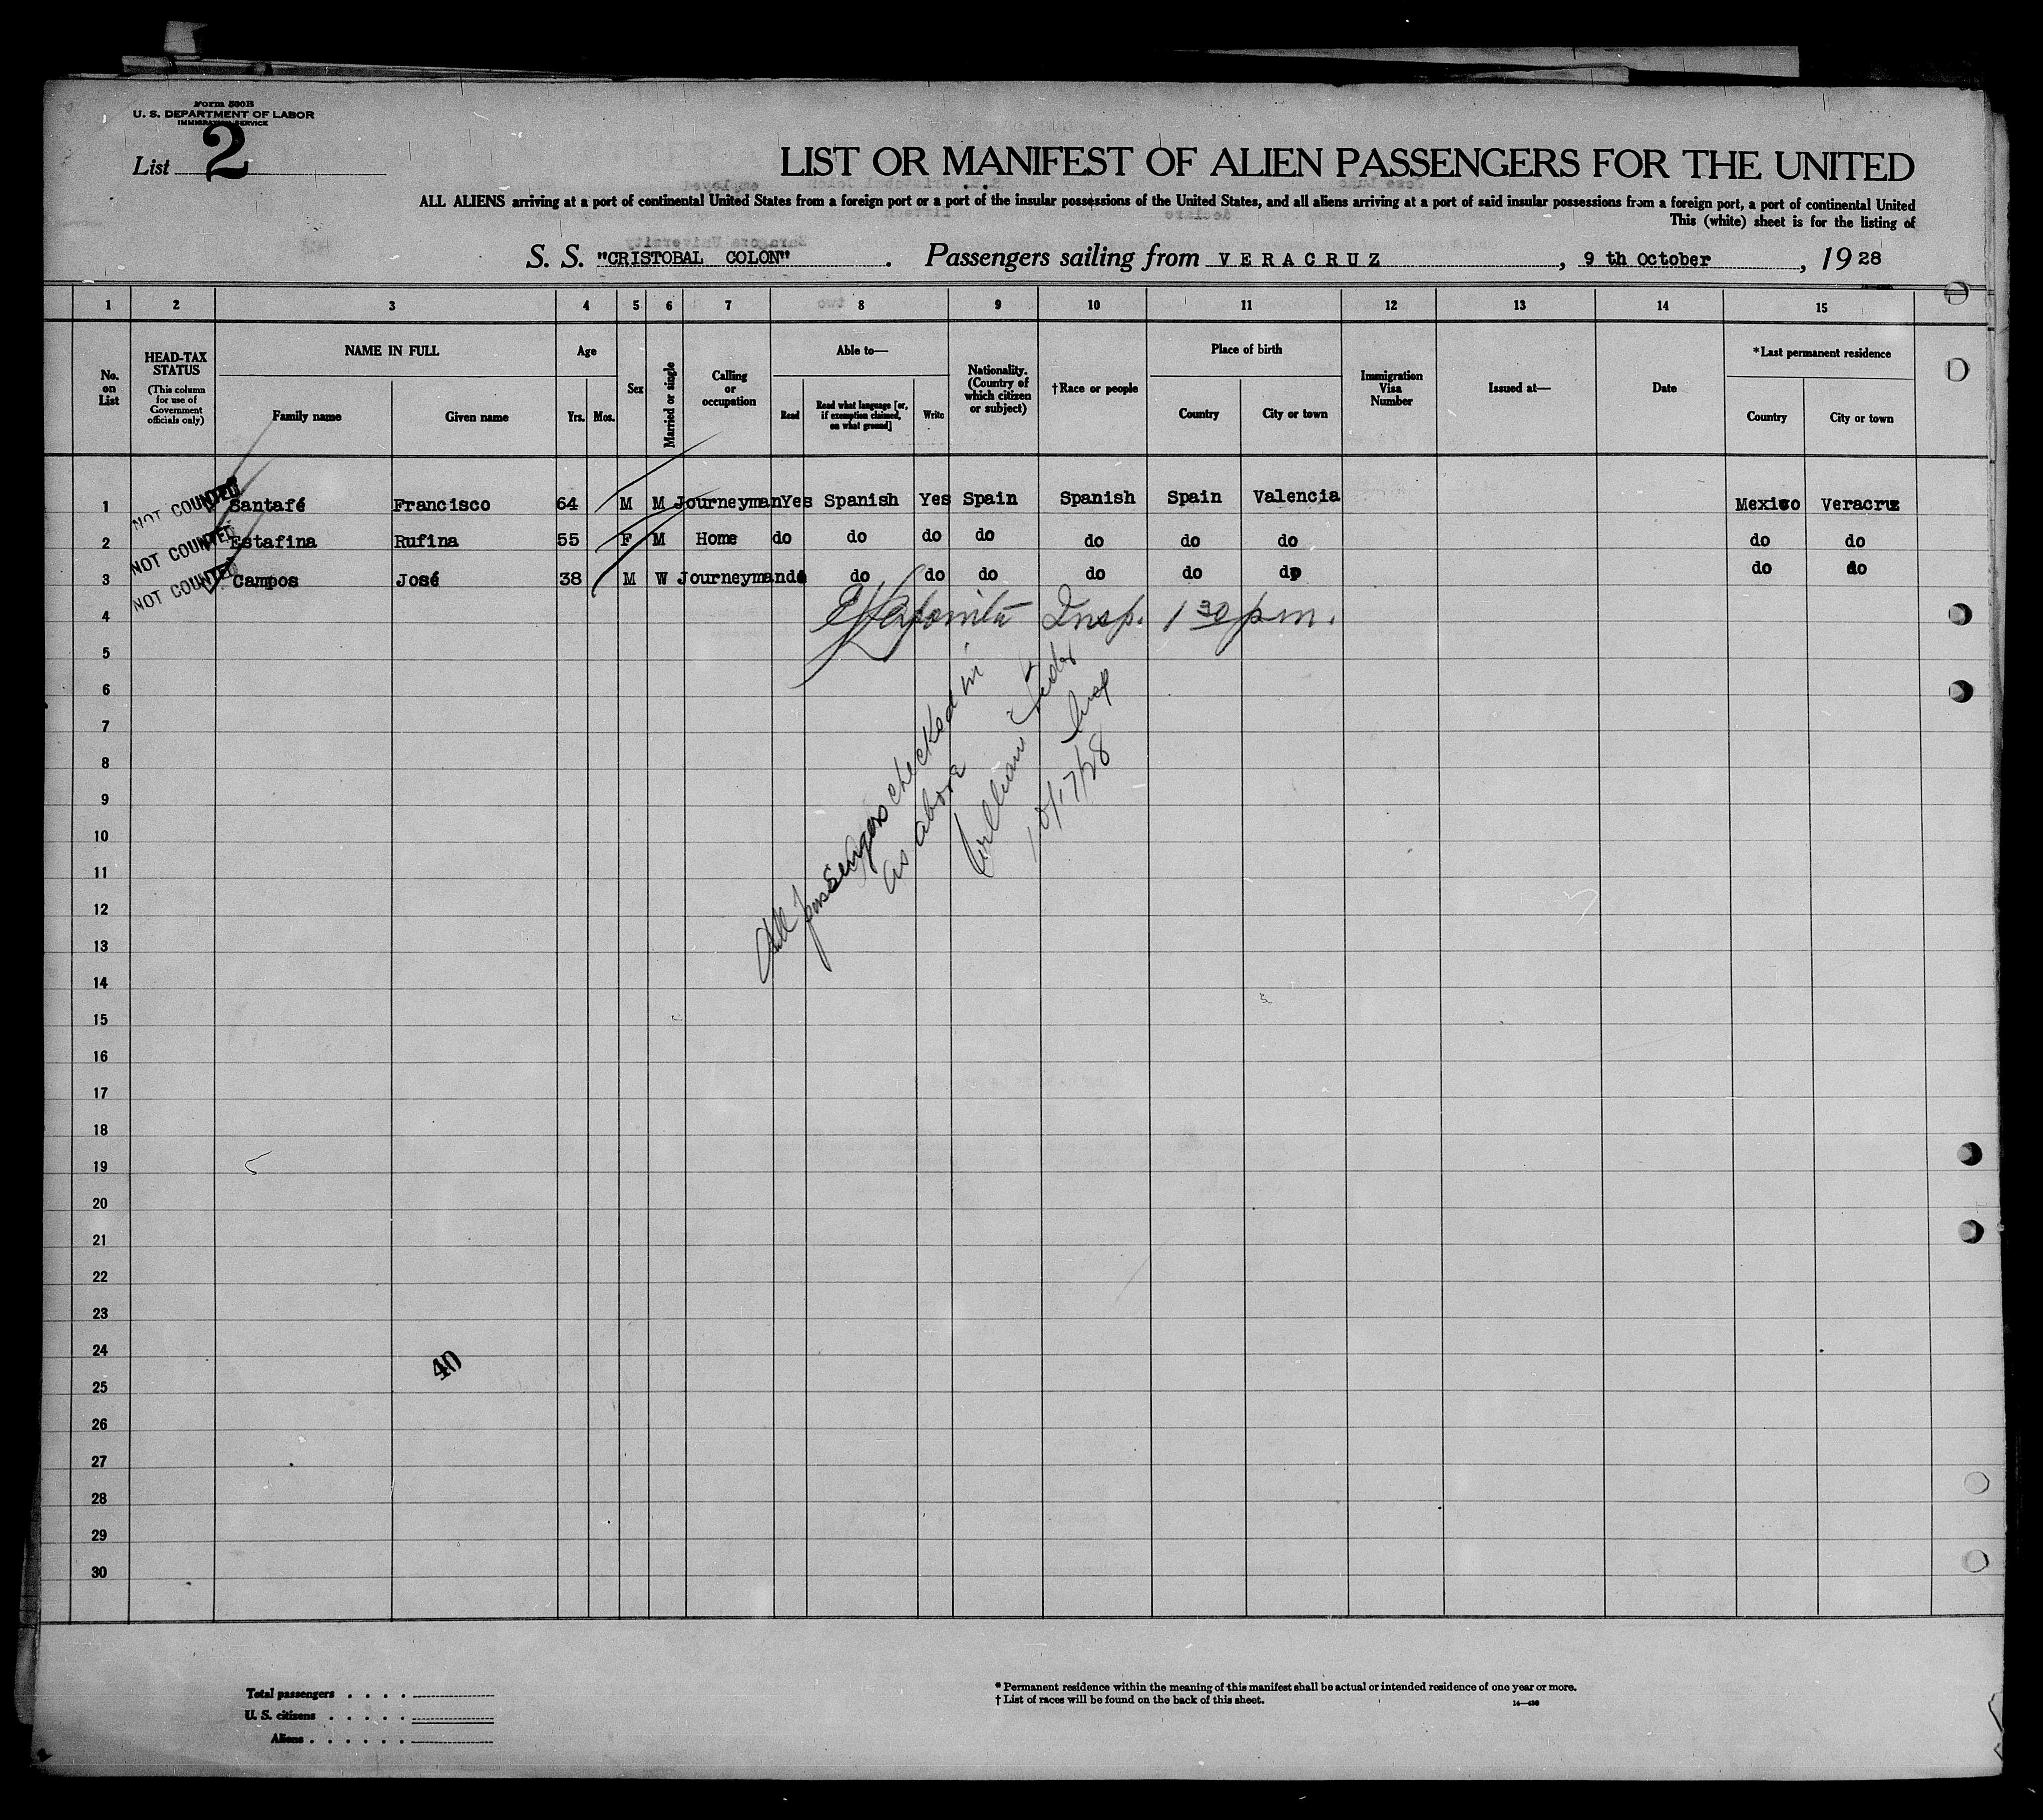 Form 500B
U. S. DEPARTMENT OF LABOR
IMMIGRATION SERVICE
List 2
LIST OR MANIFEST OF ALIEN PASSENGERS FOR THE UNITED
ALL ALIENS arriving at a port of continental United States from a foreign port or a port of the insular possessions of the United States, and all aliens arriving at a port of said insular possessions from a foreign port, a port of continental United
This (white) sheet is for the listing of
S. S. "CRISTOBAL COLON" . Passengers sailing from VERACRUZ , 9 th October , 19 28
1 2 3 4 5 6 7 8 9 10 11 12 13 14 15
No. on List
HEAD-TAX STATUS
(This column for use of Government officials only)
NAME IN FULL
Family name Given name
Age
Yrs. Mos.
Sex
Married or single
Calling or occupation
Able to—
Read
Read what language [or, if exemption claimed, on what ground]
Write
Nationality. (Country of which citizen or subject)
†Race or people
Place of birth
Country City or town
Immigration Visa Number
Issued at—
Date
*Last permanent residence
Country City or town
1 NOT COUNTED Santafé Francisco 64 M M Journeyman Yes Spanish Yes Spain Spanish Spain Valencia Mexico Veracruz
2 NOT COUNTED Estafina Rufina 55 F M Home do do do do do do do do do
3 NOT COUNTED Campos José 38 M W Journeyman do do do do do do do do do
4 Insp. 1 30 p m.
5
6
7
8
9
10
11
12
13
14
15
16
17
18
19
20
21
22
23
24
25
26
27
28
29
30
All passengers checked in
as above
William
Insp
10/17/28
40
Total passengers . . . .
U. S. citizens . . . . .
Aliens . . . . . .
* Permanent residence within the meaning of this manifest shall be actual or intended residence of one year or more.
† List of races will be found on the back of this sheet.